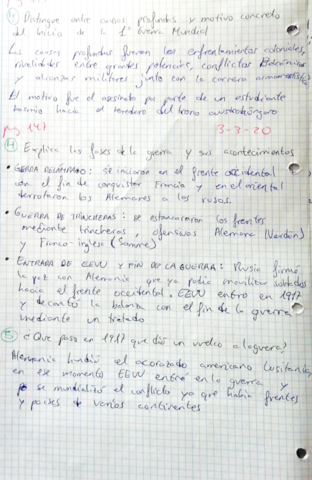 ① Distingue entre causas profundas y motivo concreto
del inicio de la 1ª Guerra Mundial
Las causas profundas fueron los enfrentamientos coloniales,
rivalidades entre grandes potencias, conflictos Balcánicos
y alianzas militares junto con la carrera armamentística
El motivo fue el asesinato por parte de un estudiante
bosnio hacia el heredero del trono austrohúngaro
pag 147
3-3-20
④ Explica las fases de la guerra y sus acontecimientos
• GUERRA RELÁMPAGO: se iniciaron en el frente occidental
con el fin de conquistar Francia y en el oriental
derrotaron los Alemanes a los rusos.
• GUERRA DE TRINCHERAS: se estancaron los frentes
mediante trincheras, ofensivas Alemana (Verdún)
y Franco-inglesa (Somme)
• ENTRADA DE EEUU Y FIN DE LA GUERRA: Rusia firmó
la paz con Alemania que ya podía movilizar soldados
hacia el frente occidental. EEUU entró en 1917
y decantó la balanza con el fin de la guerra
mediante un tratado
⑤ ¿Que paso en 1917 que dió un vuelco a la guerra?
Alemania hundió el acorazado americano Lusitania,
en ese momento EEUU entró en la guerra y
se mundializó el conflicto ya que había frentes
y países de varios continentes